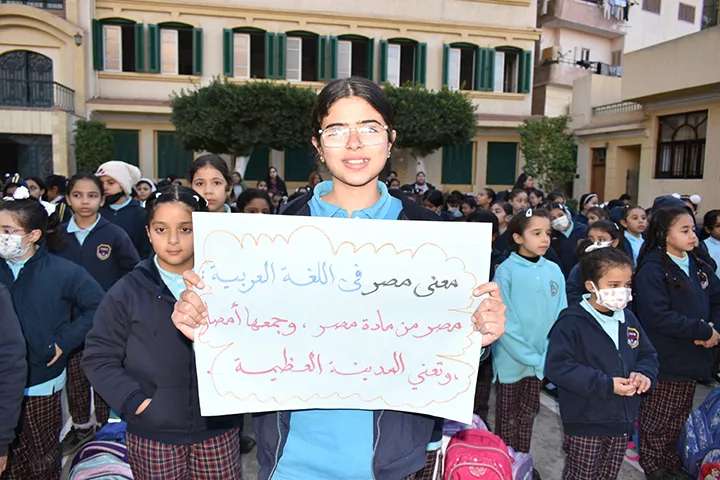 معنى مصر في اللغة العربية :
مصر من مادة مصر ، وجمعها أمصار
، وتعني المدينة العظيمة .